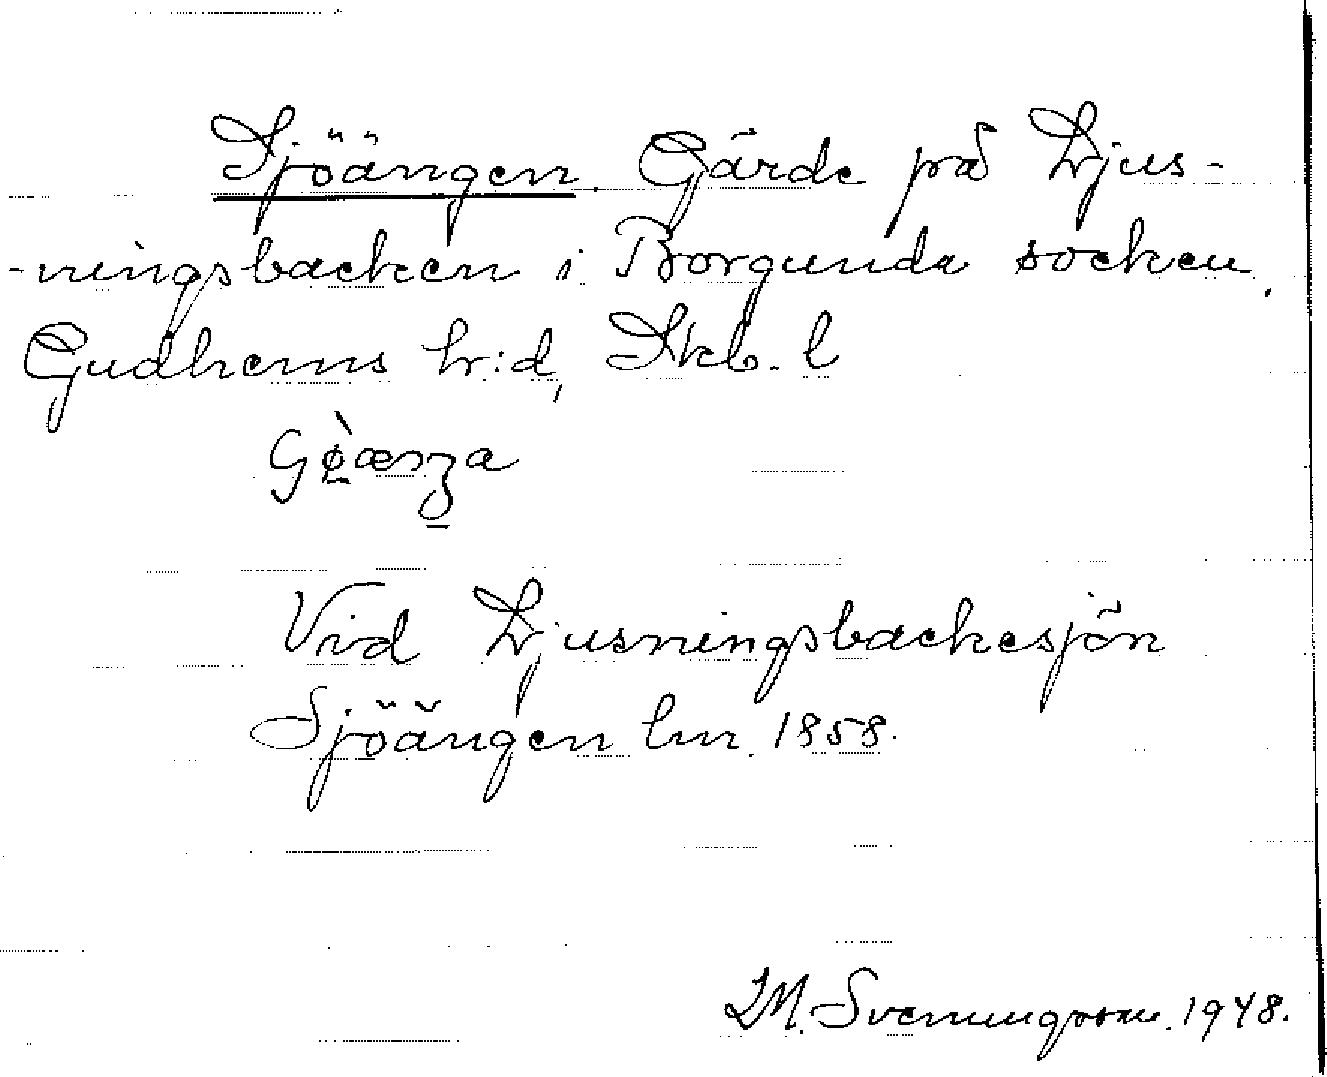 Sjöängen. Gärde på Ljus-
-ningsbacken i Borgunda socken,
Gudhems h:d, Skb. l
Vid Ljusningsbackesjön
Sjöängen lm. 1858.
M. Svenningsson. 1948.